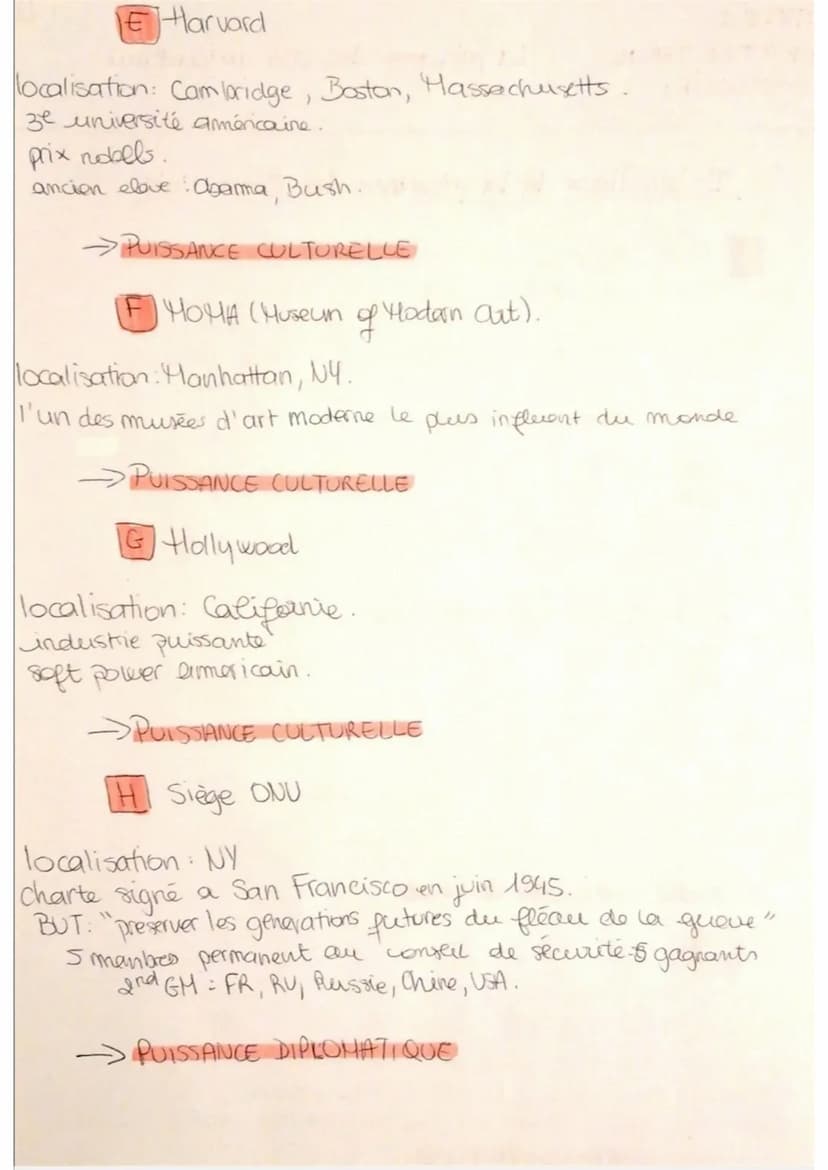 E Harvard
localisation: Cambridge, Boston, Massachusetts.
3e université américaine.
prix nobels.
ancien elève : Obama, Bush.
→ PUISSANCE CULTURELLE
F MOMA (Museum of Modern Art).
localisation: Manhattan, NY.
l'un des musées d'art moderne le plus influent du monde
→ PUISSANCE CULTURELLE
G Hollywood
localisation: Californie.
industrie puissante
soft power américain.
→ PUISSANCE CULTURELLE
H Siège ONU
localisation: NY
charte signé a San Francisco en juin 1945.
BUT: "preserver les générations futures du fléau de la guerre"
5 membres permanent au conseil de sécurité 5 gagnants
2nd GM : FR, RU, Russie, Chine, USA.
→ PUISSANCE DIPLOMATIQUE